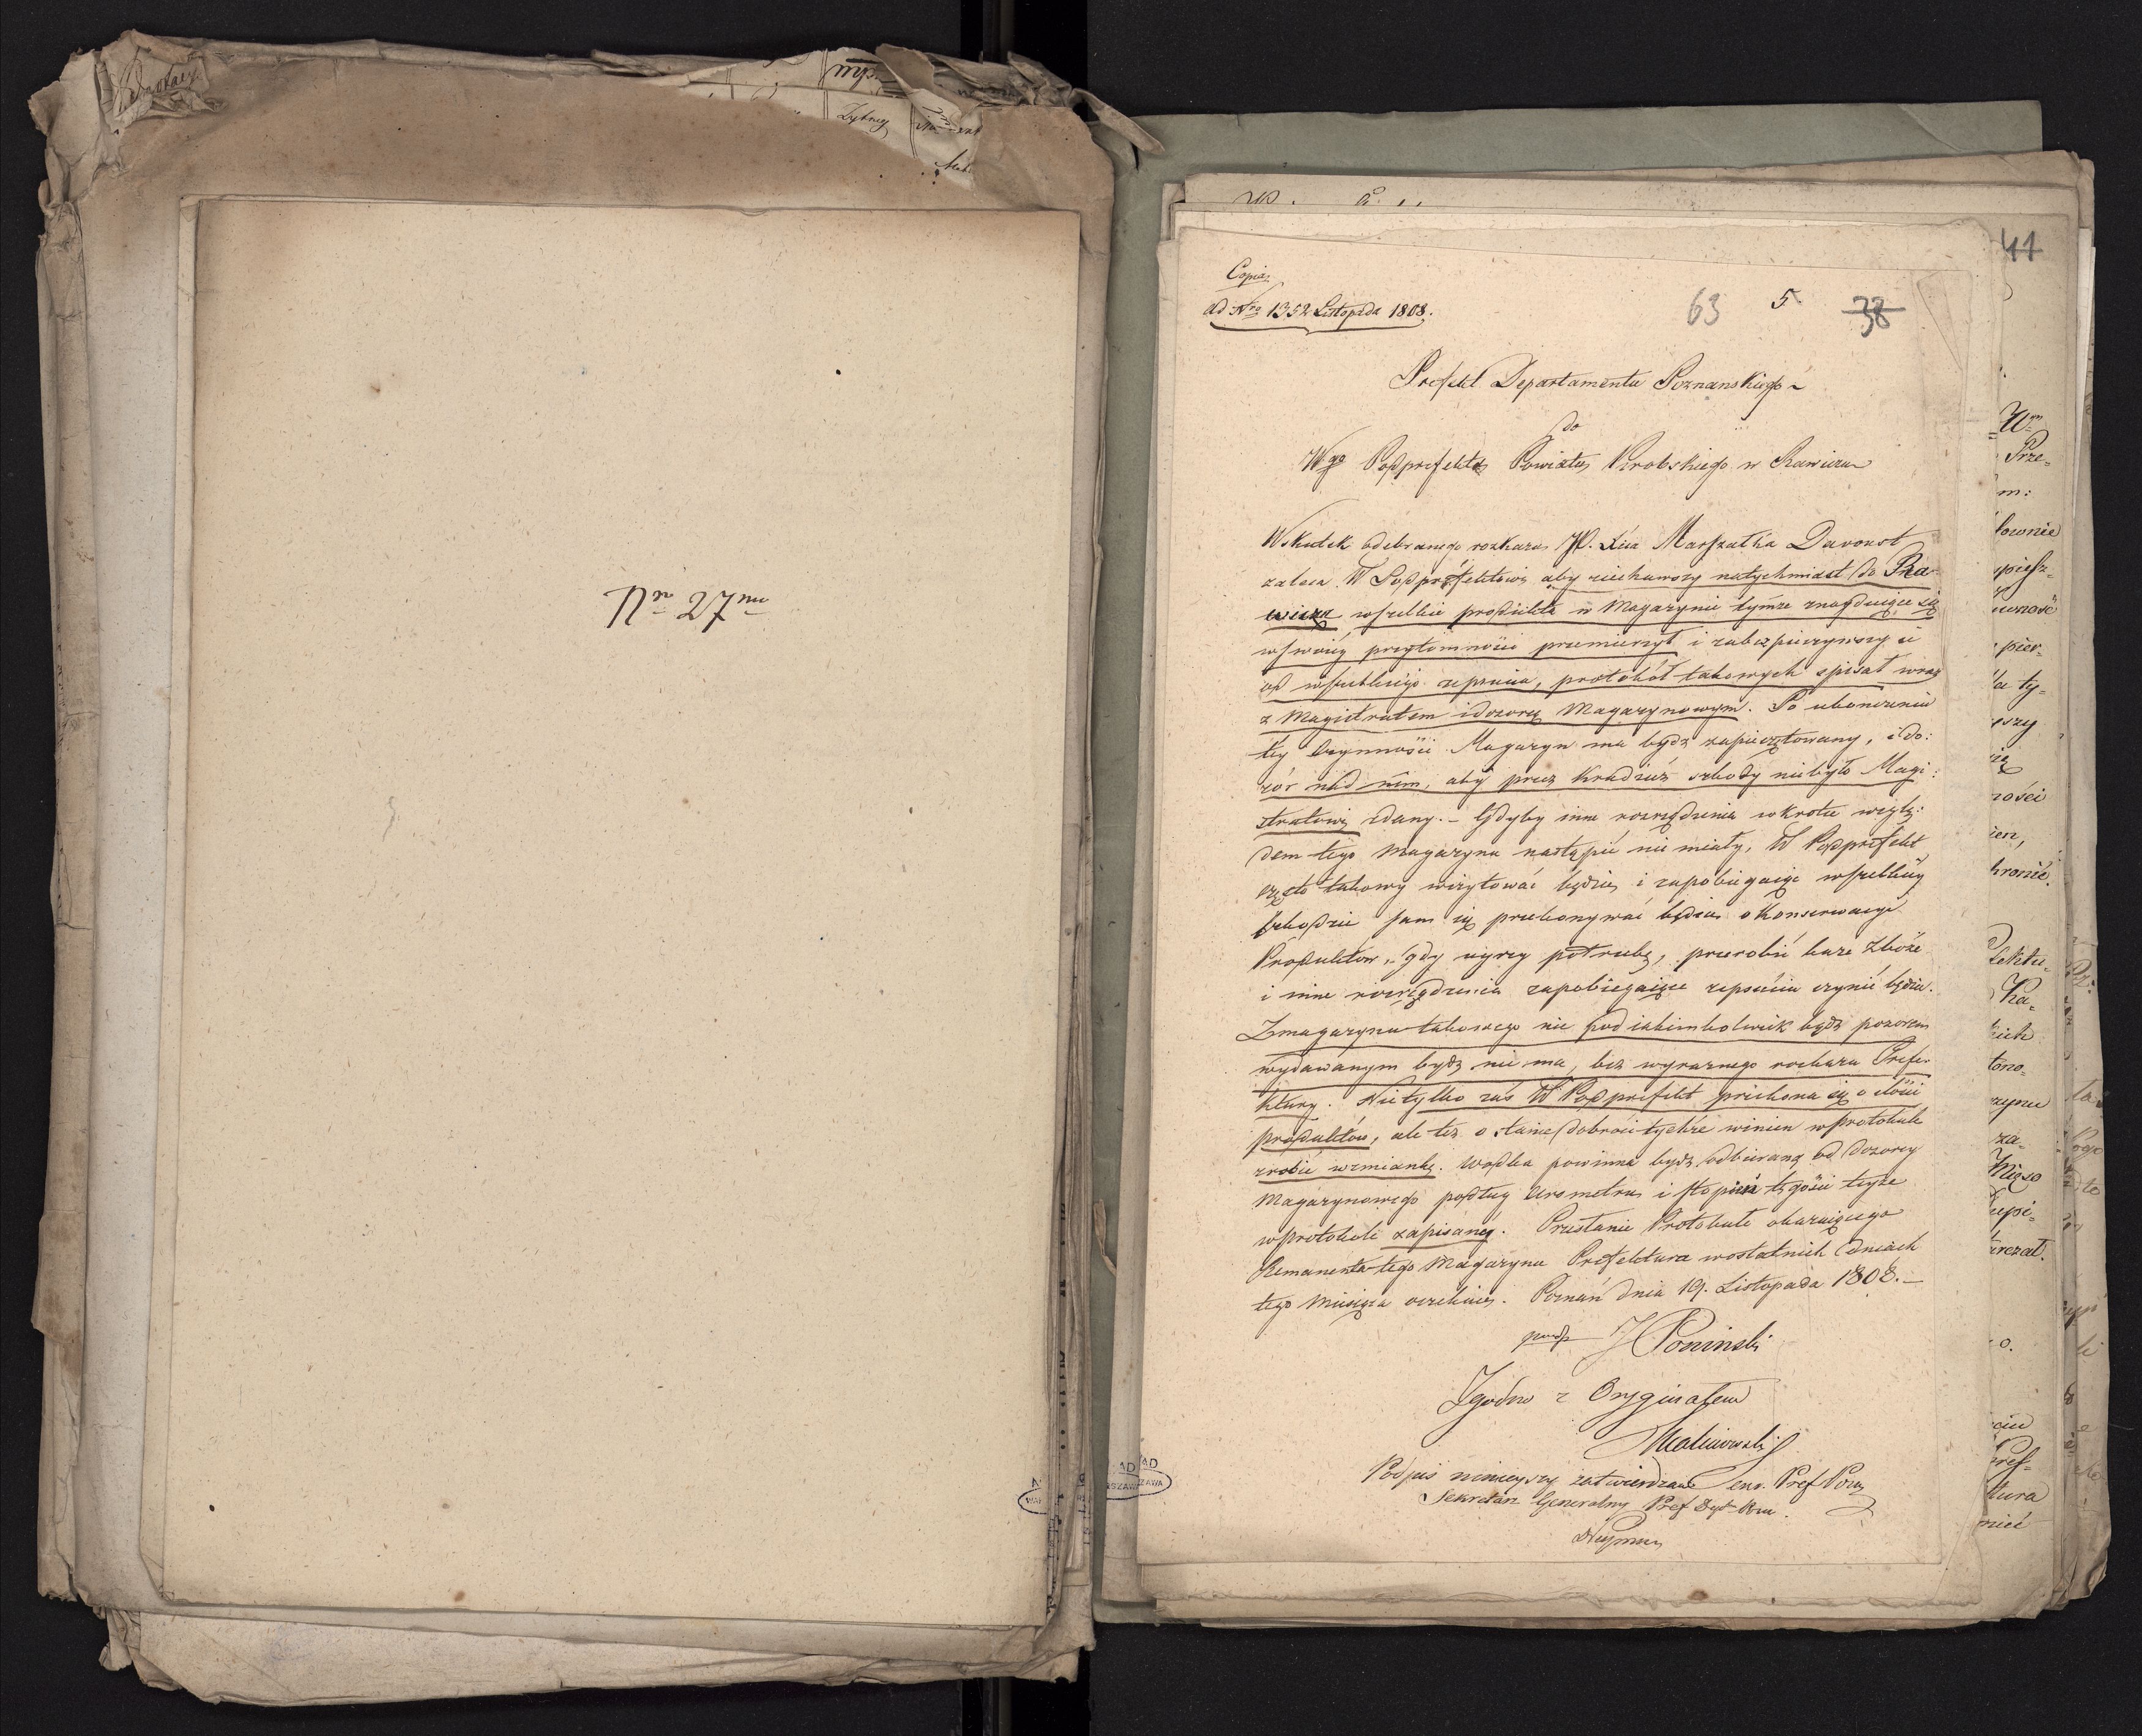 Nro 27mu
Copia
ad Nro 1352 Listopada 1808.
63 5. 38
41
Prefekt Departamentu Poznanskiego
do
Wgo Podprefekta Powiatu Krobskiego w Rawiczu
Wskutek odebranego rozkazu JO. Xcia Marszałka Davoust
zaleca W Podprefektowi aby ziechawszy natychmiast do Ra-
wicza wszelkie produkta w Magazynie tymże znayduiące się
wswoiey przytomności przemierzył i zabezpieczywszy ie
od wszelkiego zepsucia, protokół takowych spisał wraz
z Magistratem i dozorcą Magazynowym. Po ukończeniu
tey Czynności Magazyn ma bydź zapieczętowany, i do:
zór nad nim, aby przez kradzież szkody niebyło Magi:
stratowi zdany. – Gdyby inne rozrządzenia wkrotce wzglę:
dem tego Magazynu nastąpić nie miały, W Podprefekt
często takowy wizytować będzie, i zapobiegaiąc wszelkiey
szkodzie sam się przekonywać będzie o konserwacyi
Produktów, gdy uyrzy potrzebę, przerobić każe Zboże
i inne rozrządzenia zapobiegaiące zepsuciu czynić będzie.
Zmagazynu takowego nic pod iakimkolwiek bądź pozorem
wydawanym bydź nie ma, bez wyraznego rozkazu Prefe-
ktury. Nietylko zaś W Podprefekt przekona się o ilości
produktów, ale też o stanie dobroci tychże winien wprotokule
zrobić wzmiankę. Wodka powinna bydź odbieraną od Dozorcy
Magazynowego podług Areometru i stopień tęgości teyże
wprotokule zapisaney. Przesłania Protokułu okazuiącego
Remanenta tego Magazynu Prefektura wostatnich dniach
tego Miesiąca oczekuie. Poznań dnia 19. Listopada 1808. –
podp J Poninski
Zgodno z Oryginałem
Malinowski
Podpis ninieyszy zatwierdzam
Sekretarz Generalny Pref Dpt Pozn.